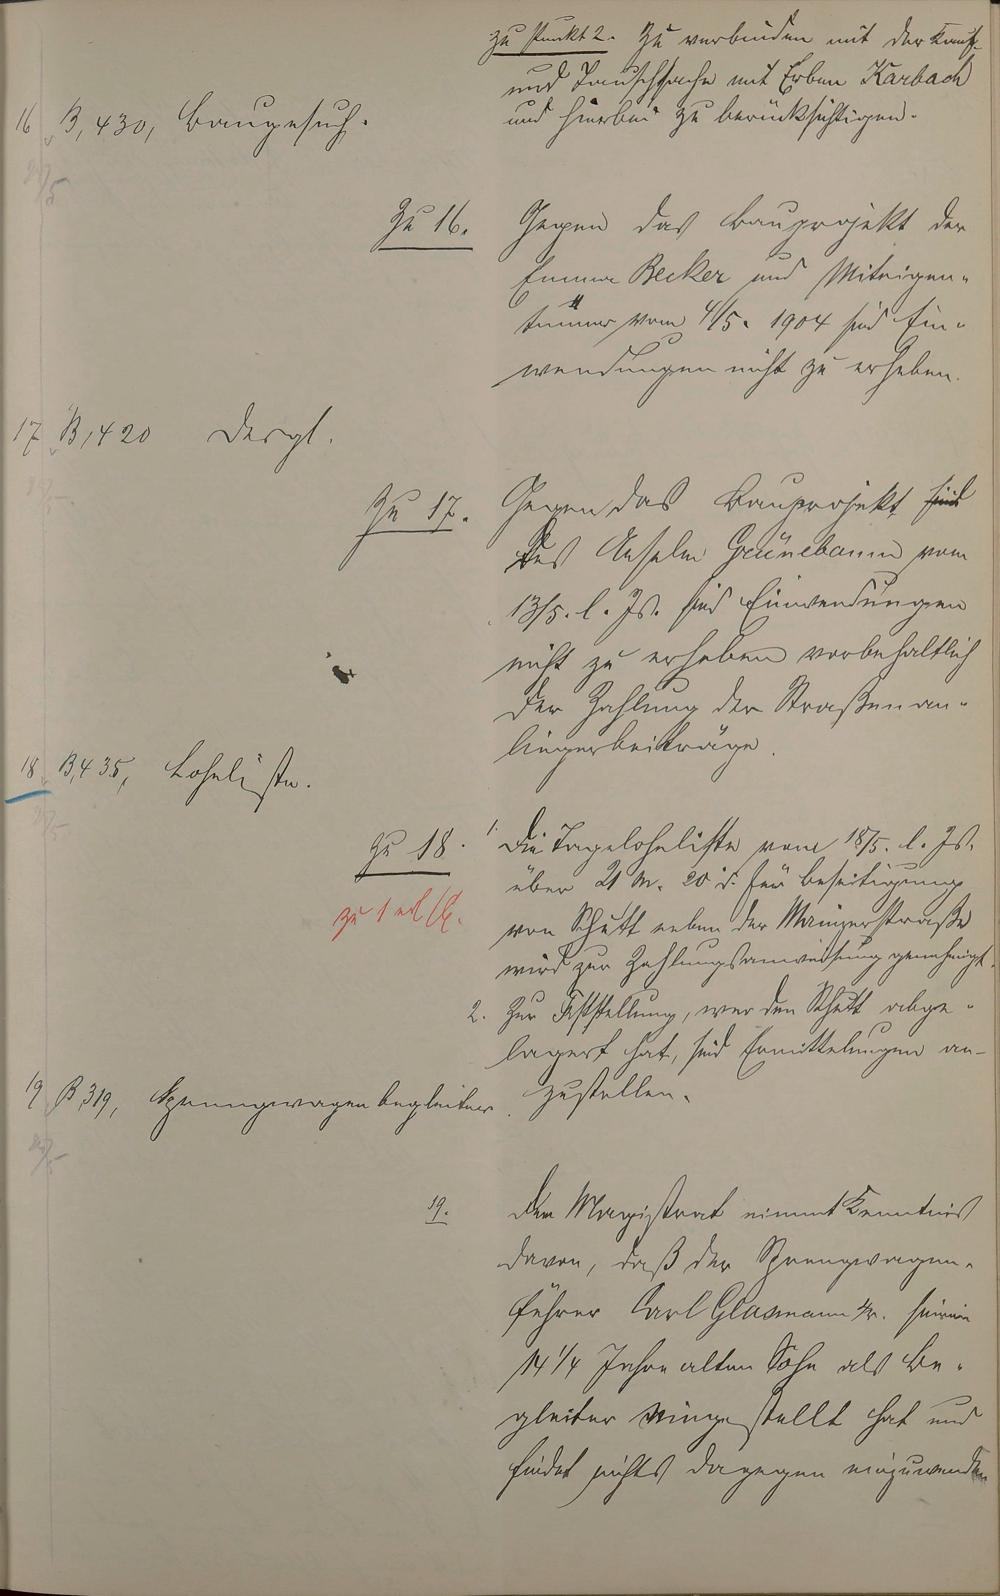 zu Punkt 2. Zu verbinden mit der Kauf-
und Tauschsache mit Erben Karbach
und hierbei zu berücksichtigen.
16 B, 430, Baugesuch.
Zu 16.
Gegen das Bauprojekt der
Emma Becker und Miteigen-
tümer vom 4/5. 1904 sind Ein-
wendungen nicht zu erheben.
17 B, 420 Dergl.
Zu 17.
Gegen das Bauprojekt sind
des Anselm Grünebaum vom
13/5. l. Js. sind Einwendungen
nicht zu erheben vorbehaltlich
der Zahlung der Straßenan-
liegerbeiträge.
18 B, 435, Lohnliste.
Zu 18.
zu 1 erl
1. Die Tagelohnliste vom 18/5. l. Js.
über 21 M. 20 d. für Beseitigung
von Schutt neben der Mainzerstraße
wird zur Zahlungsanweisung genehmigt.
2. Zur Feststellung, wer den Schutt abge-
lagert hat, sind Ermittelungen an-
zustellen.
19 B, 319, Sprengwagenbegleiter.
19.
Der Magistrat nimmt Kenntnis
davon, daß der Sprengwagen-
führer Carl Glasmann seinen
14 1/4 Jahre alten Sohn als Be-
gleiter eingestellt hat und
findet nichts dagegen einzuwenden